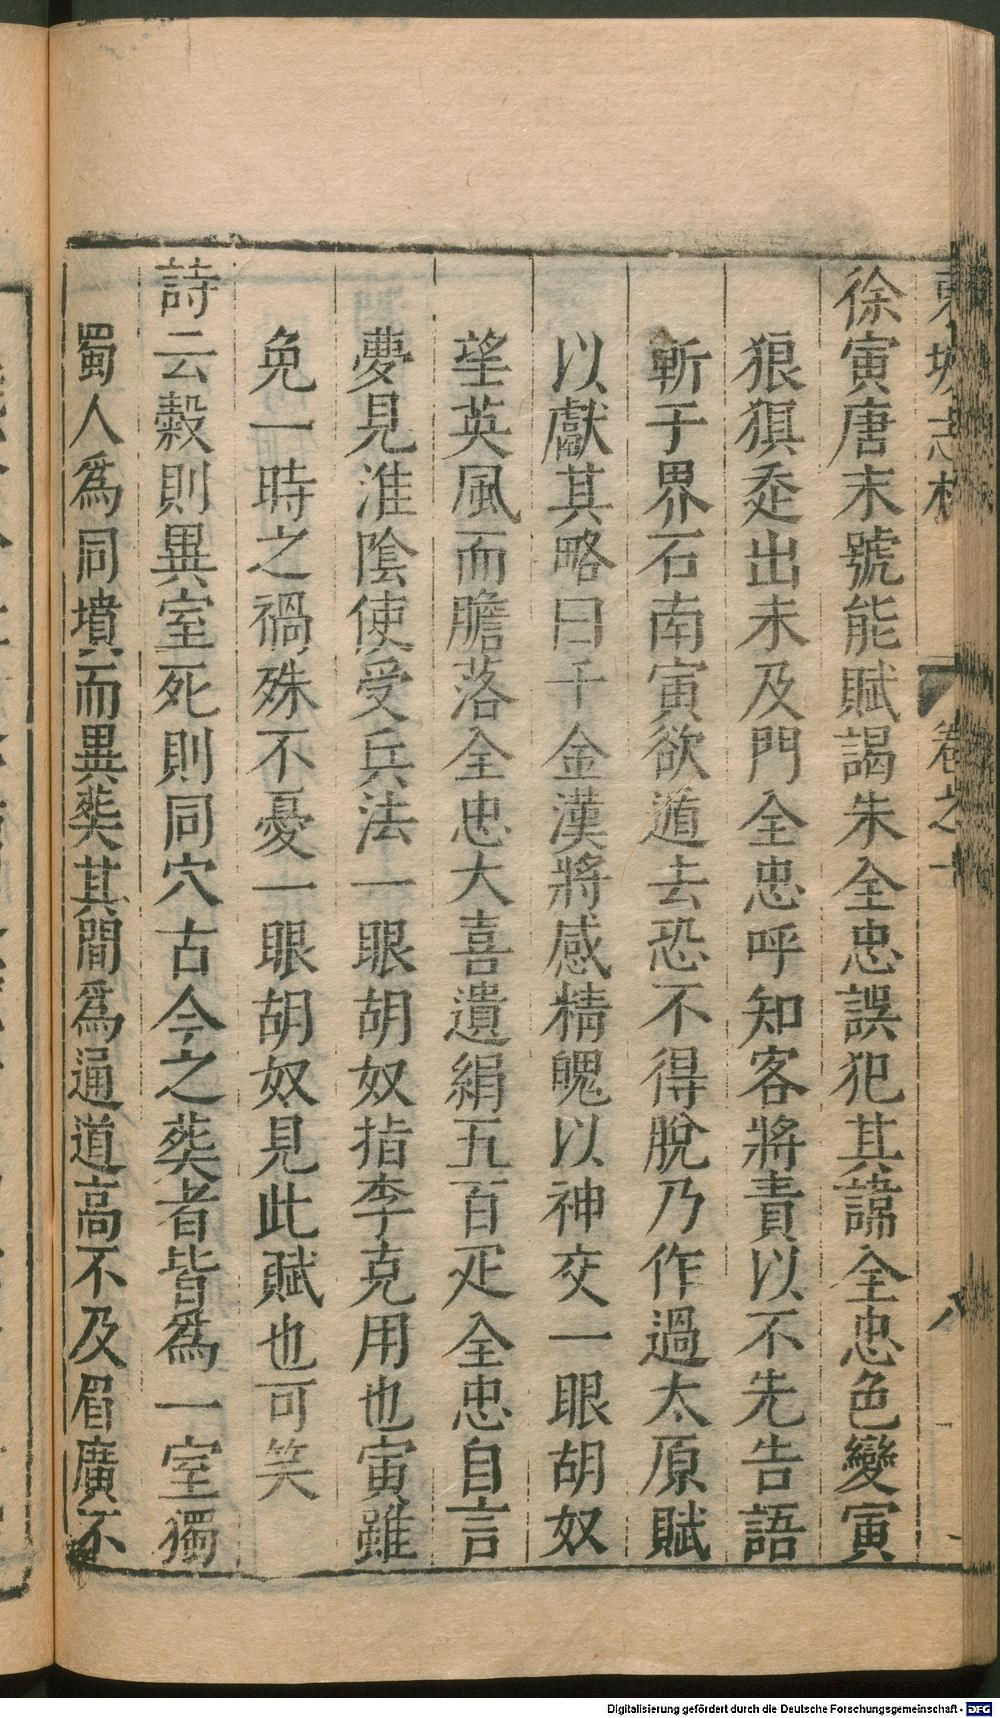 東坡志林 卷之一 八
徐寅唐末號能賦謁朱全忠誤犯其諱全忠色變寅
狼狽走出未及門全忠呼知客將責以不先告語
斬于界石南寅欲遁去恐不得脫乃作過太原賦
以獻其略曰千金漢將感精魄以神交一眼胡奴
望英風而膽落全忠大喜遺絹五百疋全忠自言
夢見淮陰使受兵法一眼胡奴指李克用也寅雖
免一時之禍殊不憂一眼胡奴見此賦也可笑
詩云榖則異室死則同穴古今之葬者皆爲一室獨
蜀人爲同墳而異葬其間爲通道高不及眉廣不
Digitalisierung gefördert durch die Deutsche Forschungsgemeinschaft - DFG